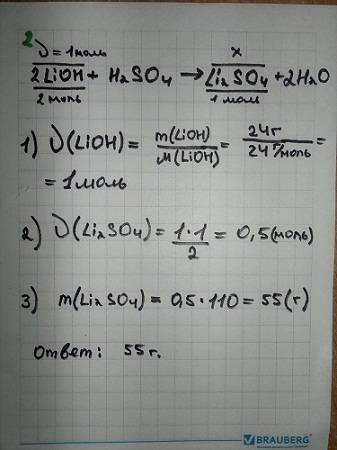 2.
ν=1моль x
2LiOH + H₂SO₄ → Li₂SO₄ + 2H₂O
2 моль 1 моль
1) ν(LiOH) = m(LiOH)/M(LiOH) = 24г/24г/моль =
= 1 моль
2) ν(Li₂SO₄) = 1·1/2 = 0,5(моль)
3) m(Li₂SO₄) = 0,5·110 = 55(г)
Ответ: 55г.
BRAUBERG